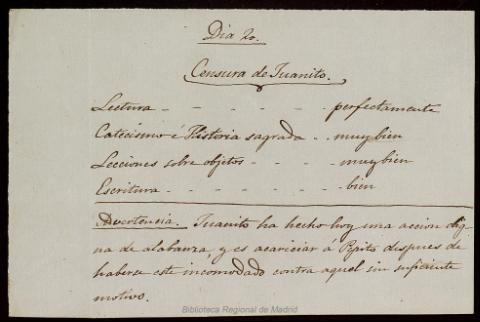 Dia 20.
Censura de Juanito.
Lectura - - - - - perfectamente
Catecismo é Historia sagrada - - muy bien
Lecciones sobre objetos - - - - muy bien
Escritura - - - - - - - bien
Advertencia. Juanito ha hecho hoy una accion dig-
na de alabanza, y es acariciar á Pepito despues de
haberse este incomodado contra aquel sin suficiente
motivo.
Biblioteca Regional de Madrid